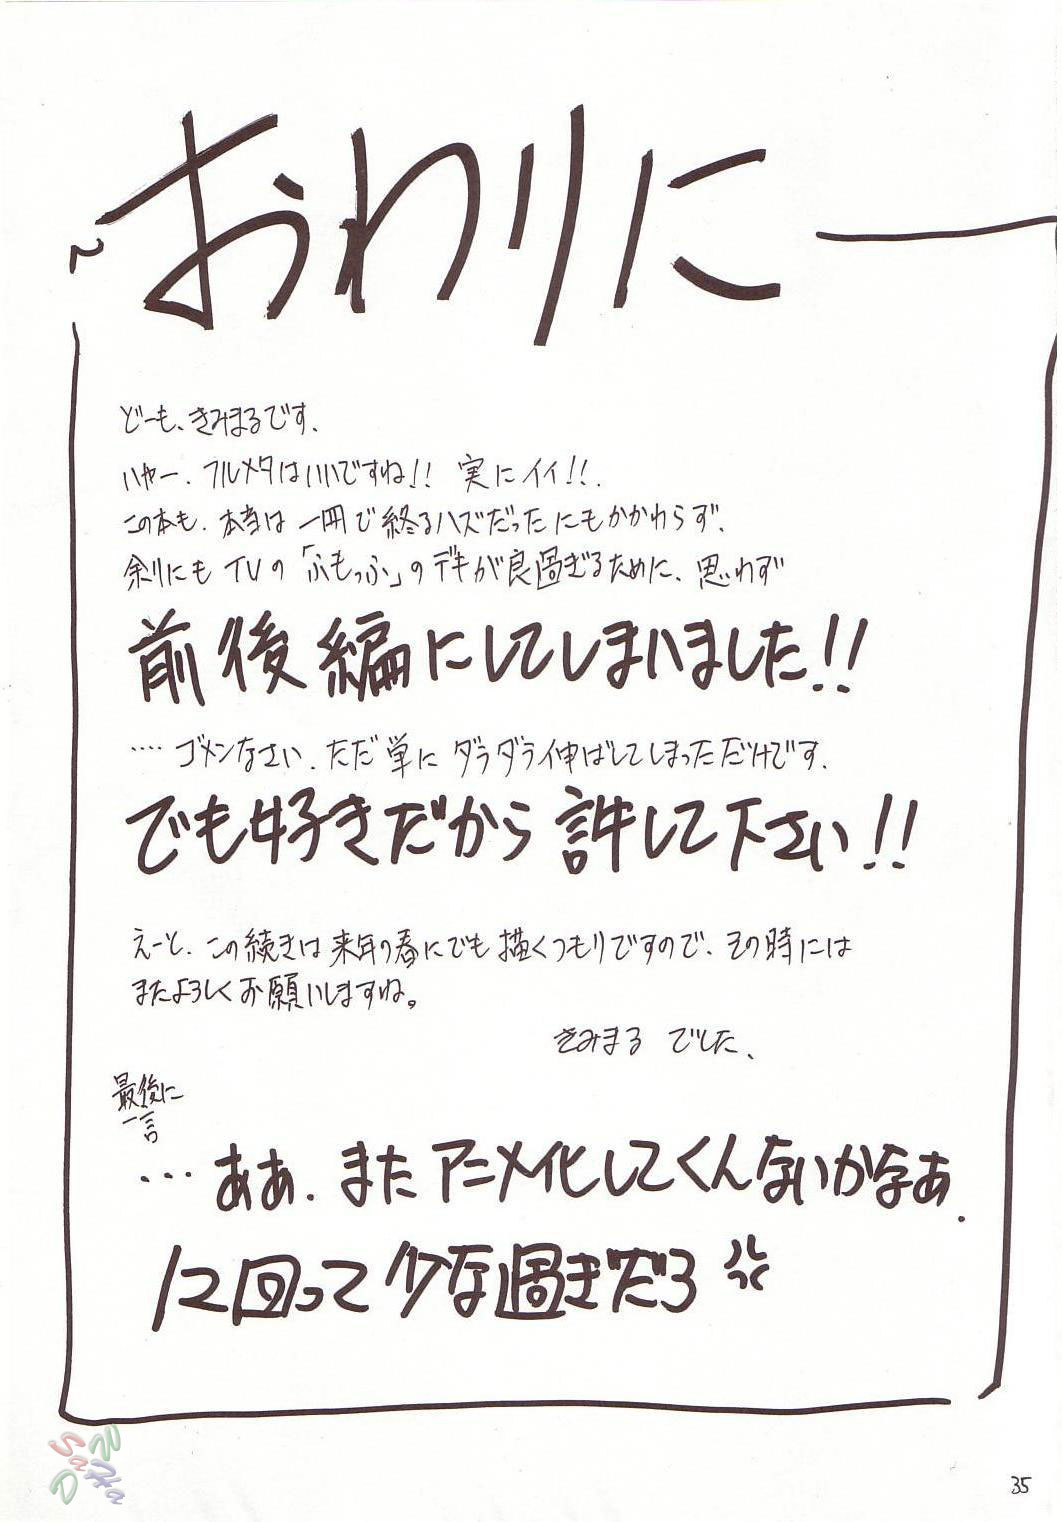 おわりに
どーも、きみまるです、
ハヤー、フルメタはいいですね!! 実にイイ!!、
この本も、本当は一冊で終るハズだったにもかかわらず、
余りにもTVの「ふもっふ」のデキが良過ぎるために、思わず
前後編にしてしまいました!!
…‥ ゴメンなさい、ただ単にダラダラ伸ばしてしまっただけです、
でも好きだから許して下さい!!
えーと、この続きは来年の春にでも描くつもりですので、その時には
またよろしくお願いしますね。
きみまる でした、
最後に
一言
…ああ、またアニメ化してくんないかなぁ、
12回って少な過ぎだろ
35